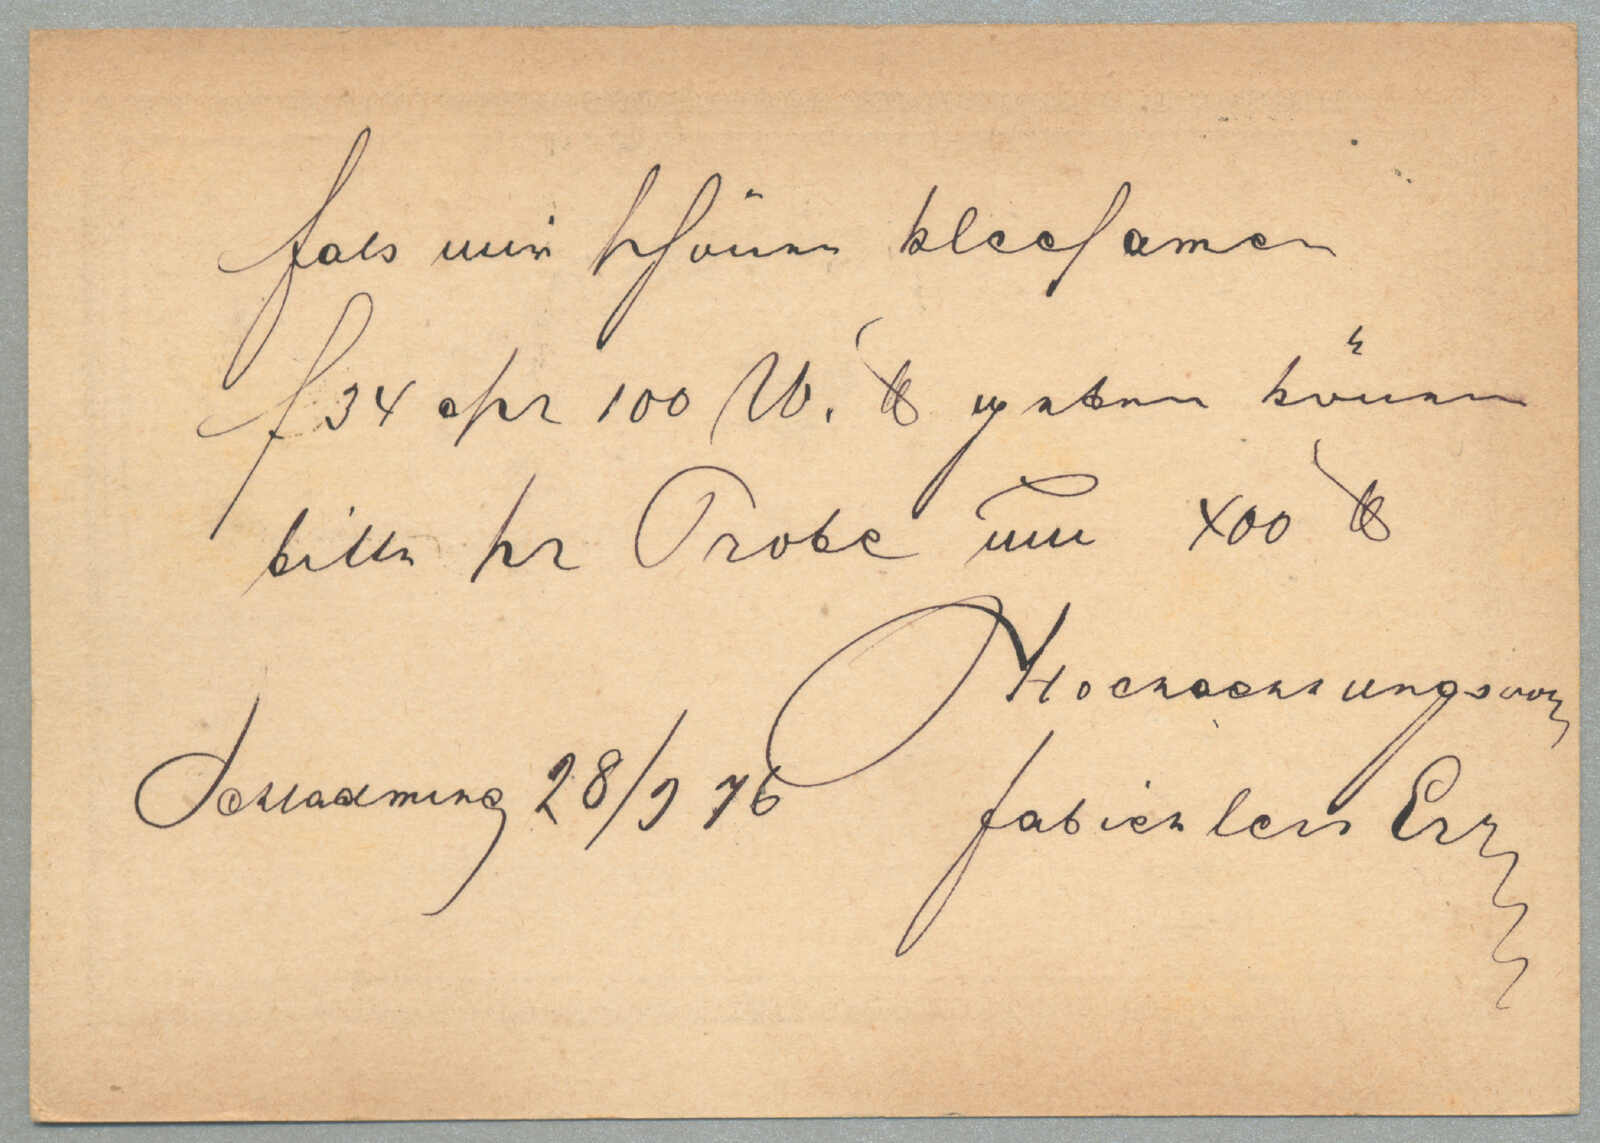 fals mir schönen Kleesamen
f 34 chpr 100 W. ℔ geben können
bitte pr Probe um 400 ℔
Hochachtungsvoll
Schladming 28/9 76